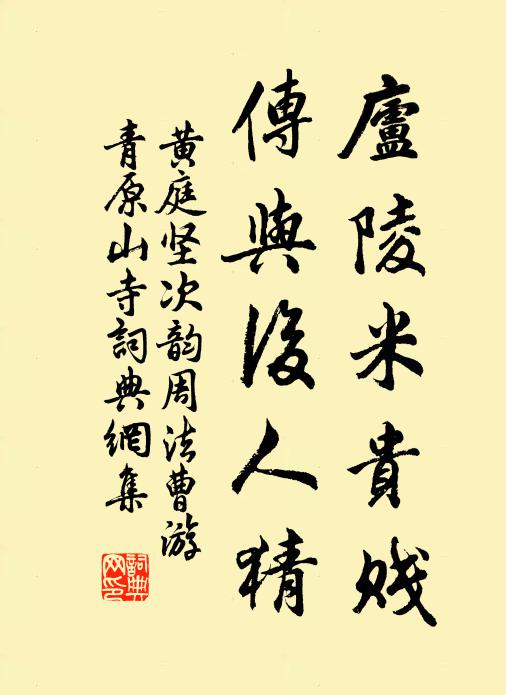 廬陵米貴賤
傳與後人猜
黄庭坚次韵周法曹游
青原山寺詞典網集
詞典网印